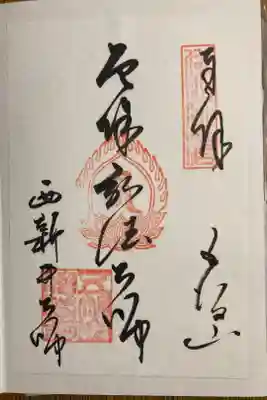 奉拝
五智山
厄除弘法大師
西新井大師